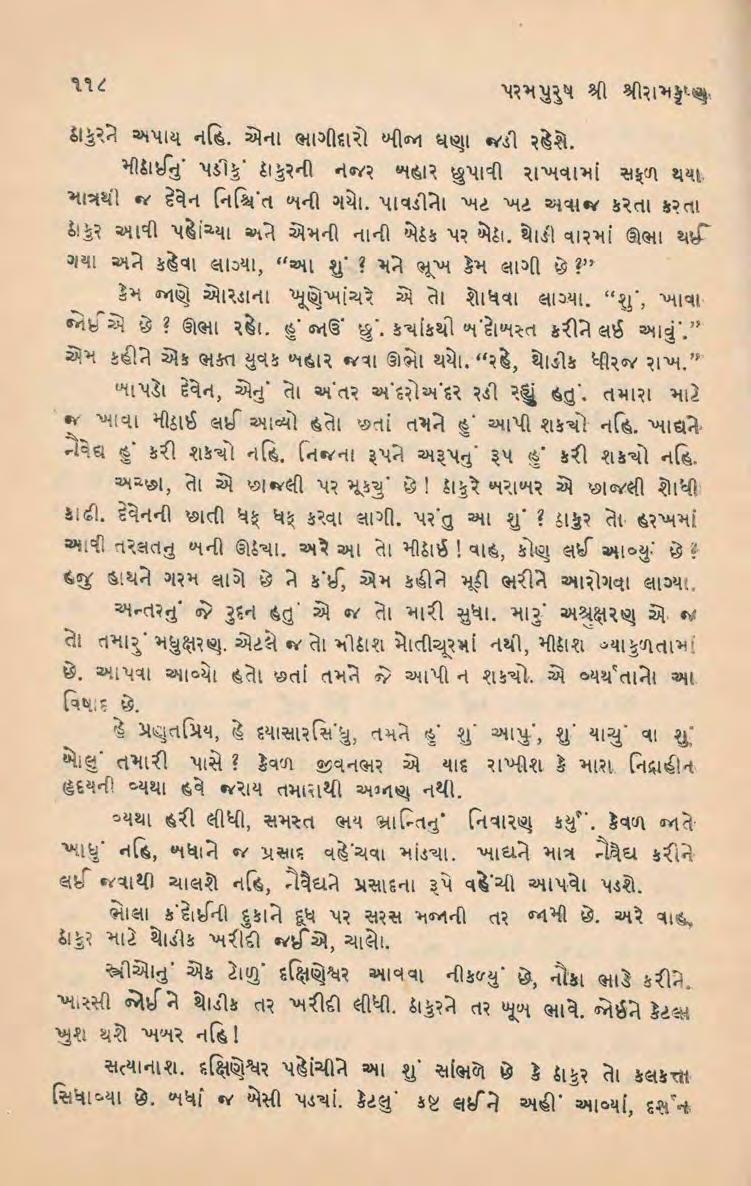 ૧૧૮
પરમપુરુષ શ્રી શ્રીરામકૃષ્ણ
ઠાકુરને અપાય નહિ. એના ભાગીદારો બીજા ઘણા જડી રહેશે.
મીઠાઈનું પડીકું ઠાકુરની નજર બહાર છુપાવી રાખવામાં સફળ થયા
માત્રથી જ દેવેન નિશ્ચિંત બની ગયો. પાવડીનો ખટ ખટ અવાજ કરતા કરતા
ઠાકુર આવી પહોંચ્યા અને એમની નાની બેઠક પર બેઠા. થોડી વારમાં ઊભા થઈ
ગયા અને કહેવા લાગ્યા, “આ શું ? મને ભૂખ કેમ લાગી છે ?”
કેમ જાણે ઓરડાના ખૂણેખાંચરે એ તો શોધવા લાગ્યા. “શું, ખાવા
જોઈએ છે ? ઊભા રહો. હું જાઉં છું. કયાંકથી બંદોબસ્ત કરીને લઈ આવું.”
એમ કહીને એક ભક્ત યુવક બહાર જવા ઊભો થયો. “રહે, થોડીક ધીરજ રાખ.”
બાપડો દેવેન, એનું તો અંતર અંદરોઅંદર રડી રહ્યું હતું. તમારા માટે
જ ખાવા મીઠાઈ લઈ આવ્યો હતો છતાં તમને હું આપી શકયો નહિ. ખાદ્યને
નૈવેદ્ય હું કરી શકયો નહિ. નિજના રૂપને અરૂપનું રૂપ હું કરી શકયો નહિ.
અચ્છા, તો એ છાજલી પર મૂકયું છે ! ઠાકુરે બરાબર એ છાજલી શોધી
કાઢી. દેવેનની છાતી ધક્ ધક્ કરવા લાગી. પરંતુ આ શું ? ઠાકુર તો હરખમાં
આવી તરલતનુ બની ઊઠયા. અરે આ તો મીઠાઈ ! વાહ, કોણ લઈ આવ્યું છે ?
હજુ હાથને ગરમ લાગે છે ને કંઈ, એમ કહીને મૂઠી ભરીને આરોગવા લાગ્યા.
અન્તરનું જે રુદન હતું એ જ તો મારી સુધા. મારું અશ્રુક્ષરણ એ જ
તો તમારું મધુક્ષરણ. એટલે જ તો મીઠાશ મોતીચૂરમાં નથી, મીઠાશ વ્યાકુળતામાં
છે. આપવા આવ્યો હતો છતાં તમને જે આપી ન શકયો. એ વ્યર્થતાનો આ
વિષાદ છે.
હે પ્રણતપ્રિય, હે દયાસારસિંધુ, તમને હું શું આપું, શું યાચું વા શું
બોલું તમારી પાસે ? કેવળ જીવનભર એ યાદ રાખીશ કે મારા નિદ્રાહીન
હૃદયની વ્યથા હવે જરાય તમારાથી અજાણ નથી.
વ્યથા હરી લીધી, સમસ્ત ભય ભ્રાન્તિનું નિવારણ કર્યું. કેવળ જાતે
ખાધું નહિ, બધાને જ પ્રસાદ વહેંચવા માંડયા. ખાદ્યને માત્ર નૈવેદ્ય કરીને
લઈ જવાથી ચાલશે નહિ, નૈવેદ્યને પ્રસાદના રૂપે વહેંચી આપવો પડશે.
ભોલા કંદોઈની દુકાને દૂધ પર સરસ મજાની તર જામી છે. અરે વાહ,
ઠાકુર માટે થોડીક ખરીદી જઈએ, ચાલો.
સ્ત્રીઓનું એક ટોળું દક્ષિણેશ્વર આવવા નીકળ્યું છે, નૌકા ભાડે કરીને.
ખારસી જોઈને થોડીક તર ખરીદી લીધી. ઠાકુરને તર ખૂબ ભાવે. જોઈને કેટલા
ખુશ થશે ખબર નહિ !
સત્યાનાશ. દક્ષિણેશ્વર પહોંચીને આ શું સાંભળે છે કે ઠાકુર તો કલકત્તા
સિધાવ્યા છે. બધાં જ બેસી પડયાં. કેટલું કષ્ટ લઈને અહીં આવ્યાં, દર્શન